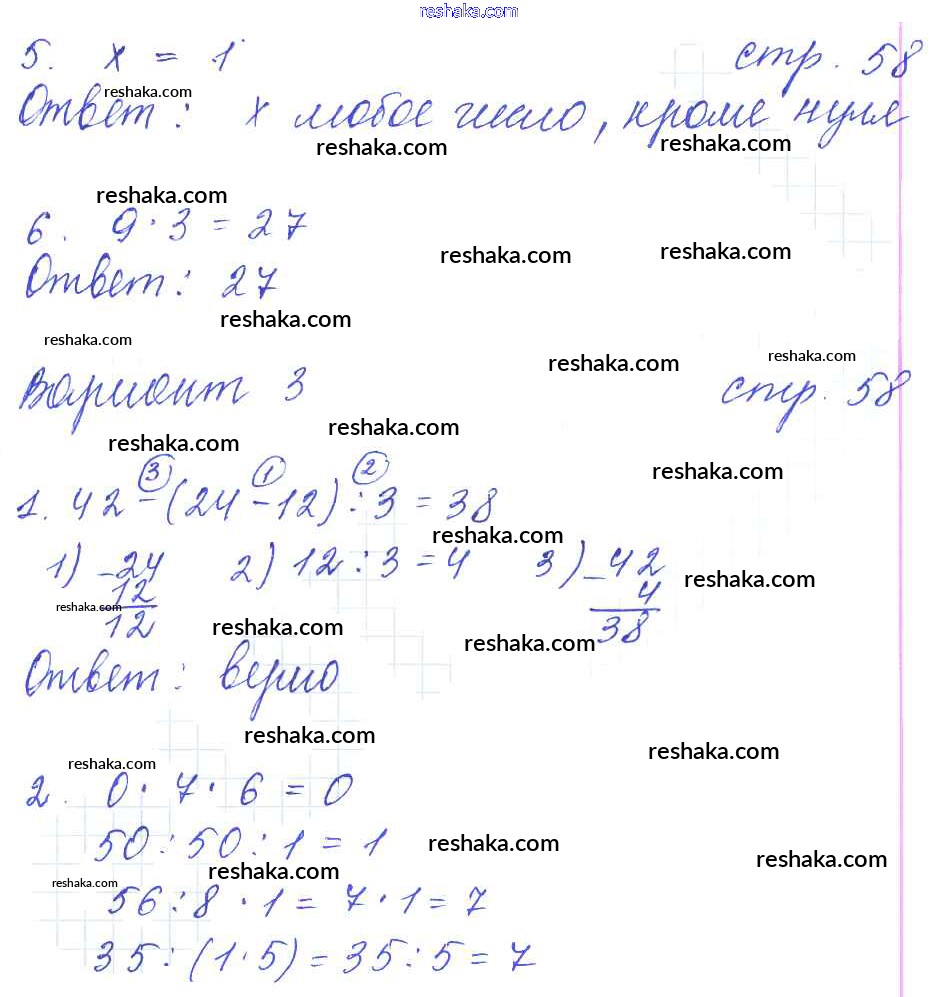 reshaka.com
5. x = 1 стр. 58
reshaka.com
Ответ: x любое число, кроме нуля
reshaka.com reshaka.com
reshaka.com
6. 9·3 = 27
reshaka.com reshaka.com
Ответ: 27
reshaka.com
reshaka.com
reshaka.com reshaka.com
Вариант 3 стр. 58
reshaka.com reshaka.com
3 1 2
reshaka.com
1. 42-(24-12):3=38
reshaka.com
1) -24 2) 12:3=4 3) -42
reshaka.com
12 4
reshaka.com
12 38
reshaka.com reshaka.com
Ответ: верно
reshaka.com reshaka.com
reshaka.com
2. 0·7·6=0
50:50:1=1
reshaka.com reshaka.com
reshaka.com reshaka.com
56:8·1=7·1=7
35:(1·5)=35:5=7